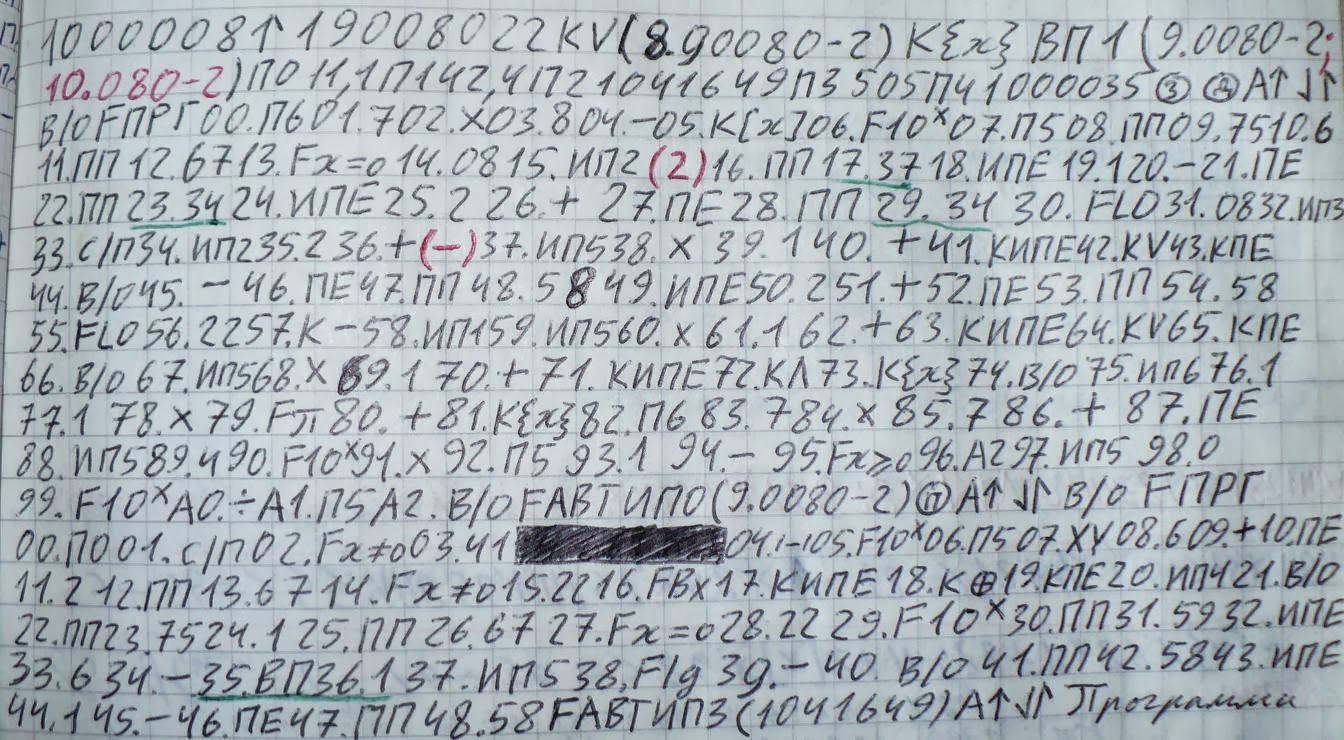 10000081↑19008022KV(8.90080-2)K{x}ВП1(9.0080-2;
10.080-2)П011,1П142,4П21041649П3505П41000035③ⒹА↑↓↑
В/ОFПРГ00.П601.702.×03.804.-05.K[x]06.F10ˣ07.П508.ПП09.7510.6
11.ПП12.6713.Fx=014.0815.ИП2(2)16.ПП17.3718.ИПЕ19.120.-21.ПЕ
22.ПП23.3424.ИПЕ25.226.+27.ПЕ28.ПП29.3430.FL031.0832.ИП3
33.С/П34.ИП235.236.+(-)37.ИП538.×39.140.+41.КИПЕ42.KV43.КПЕ
44.В/045.-46.ПЕ47.ПП48.5849.ИПЕ50.251.+52.ПЕ53.ПП54.58
55.FL056.2257.К-58.ИП159.ИП560.×61.162.+63.КИПЕ64.KV65.КПЕ
66.В/067.ИП568.×69.170.+71.КИПЕ72.КΛ73.К{x}74.В/075.ИП676.1
77.178.×79.Fπ80.+81.К{x}82.П683.784.×85.786.+87.ПЕ
88.ИП589.490.F10ˣ91.×92.П593.194.-95.Fx≥096.А297.ИП598.0
99.F10ˣА0.÷А1.П5А2.В/0FАВТИП0(9.0080-2)ⓃА↑↓↑В/ОFПРГ
00.П001.С/П02.Fx≠003.4104.1-105.F10ˣ06.П507.XY08.609.+10.ПЕ
11.212.ПП13.6714.Fx≠015.2216.FBx17.КИПЕ18.К⊕19.КПЕ20.ИП421.В/0
22.ПП23.7524.125.ПП26.6727.Fx=028.2229.F10ˣ30.ПП31.5932.ИПЕ
33.634.-35.ВП36.137.ИП538.Flg39.-40.В/041.ПП42.5843.ИПЕ
44.145.-46.ПЕ47.ПП48.58FАВТИП3(1041649)А↑↓↑Программа